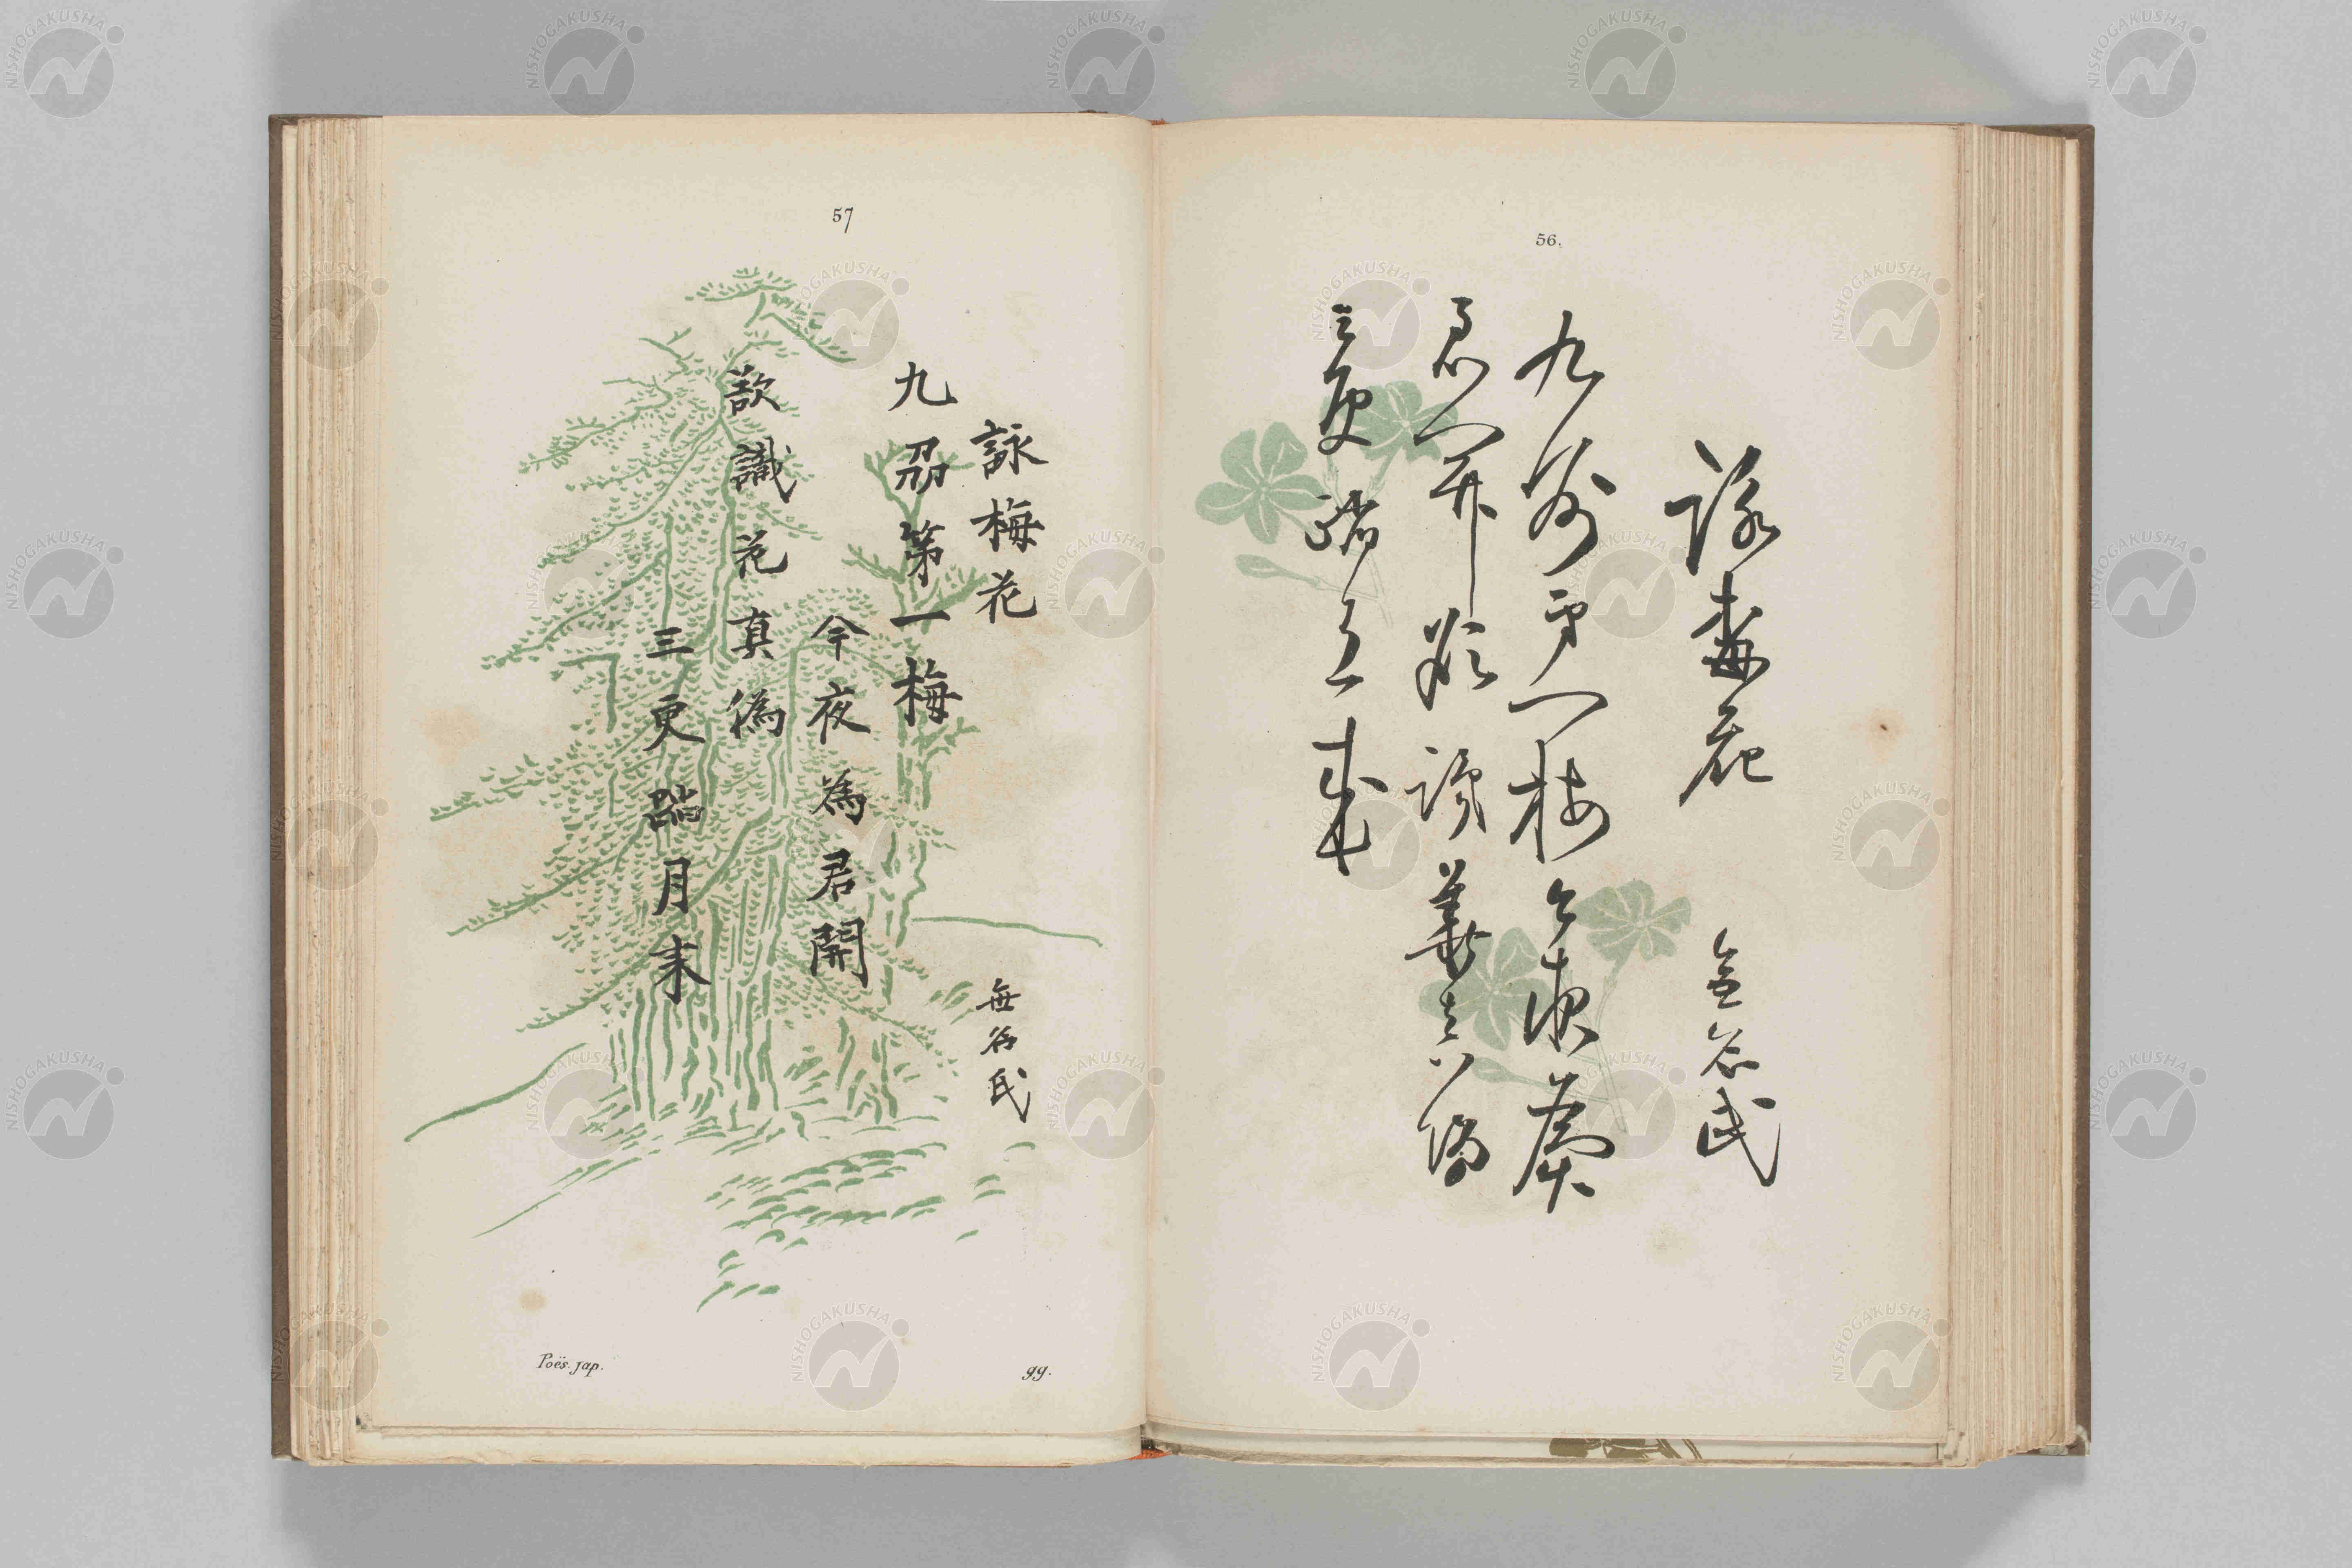 56.
詠梅花 無名氏
九州第一梅今夜為
君開欲識華真偽
三更踏月来
57
詠梅花 無名氏
九刕第一梅
今夜為君開
欲識花真偽
三更踏月来
Poës. jap.
gg.
NISHOGAKUSHA